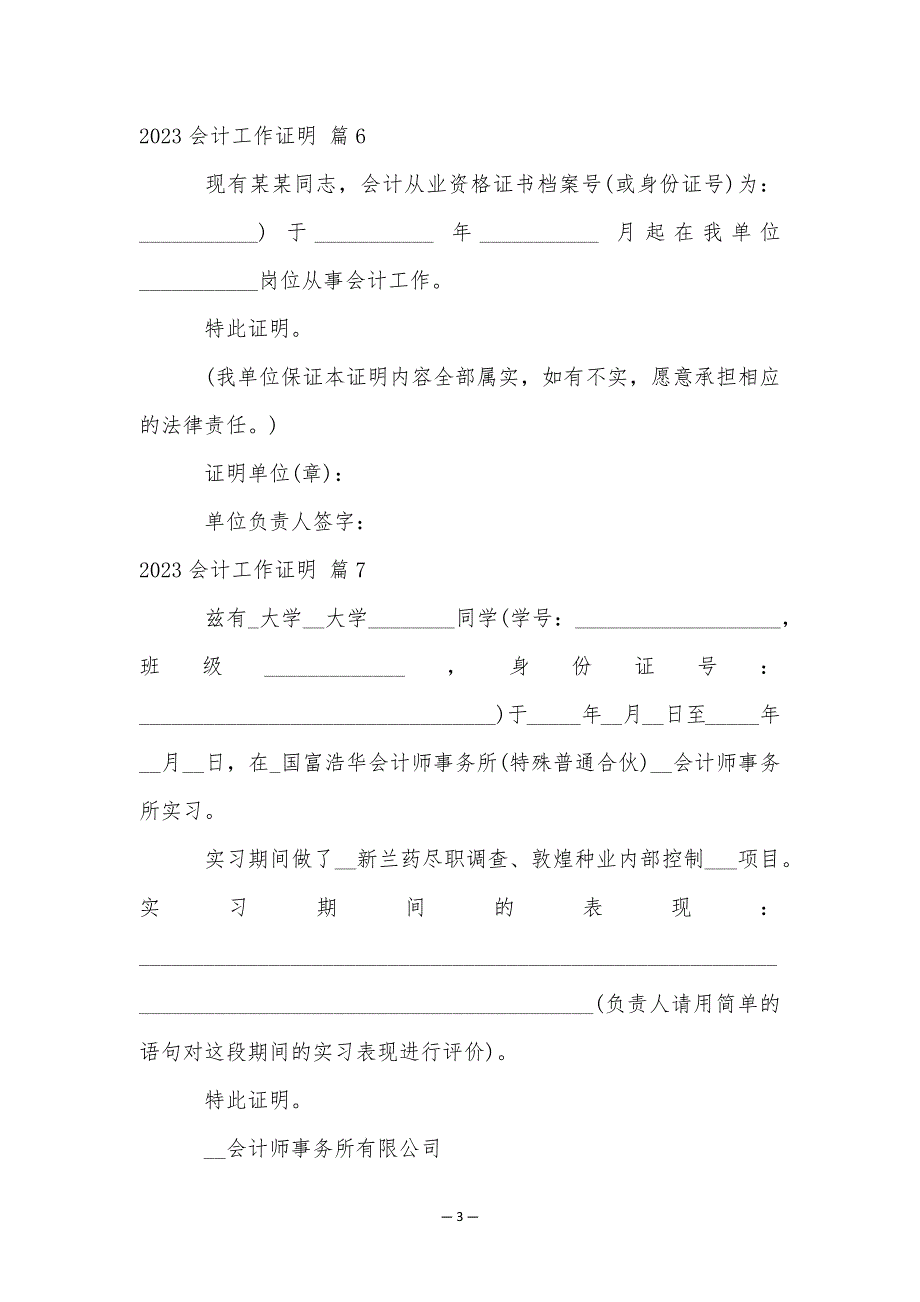 2023 会计工作证明 篇 6
现有某某同志，会计从业资格证书档案号(或身份证号)为：
___________) 于 ___________ 年 ___________ 月起在我单位
___________岗位从事会计工作。
特此证明。
(我单位保证本证明内容全部属实，如有不实，愿意承担相应
的法律责任。)
证明单位(章)：
单位负责人签字：
2023 会计工作证明 篇 7
兹有_大学__大学________同学(学号：___________________，
班级_____________，身份证号：
_________________________________)于_____年__月__日至_____年
__月__日，在_国富浩华会计师事务所(特殊普通合伙)__会计师事务
所实习。
实习期间做了__新兰药尽职调查、敦煌种业内部控制___项目。
实习期间的表现：
___________________________________________________________
__________________________________________(负责人请用简单的
语句对这段期间的实习表现进行评价)。
特此证明。
__会计师事务所有限公司
— 3 —